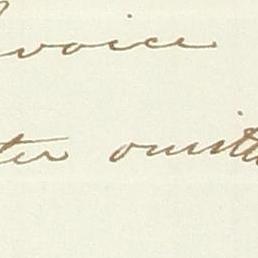 voice
ter omitt